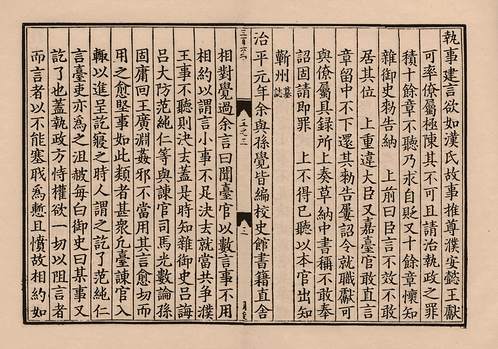 執事建言欲如漢氏故事推尊濮安懿王獻
可率僚屬極陳其不可且請治執政之罪
積十餘章不聽乃求自貶又十餘章懷知
雜御史勅告納　上前曰臣言不效不敢
居其位　上重違大臣又嘉臺官敢直言
章留中不下還其勅告屢詔令就職獻可
與僚屬具録所上奏草納中書稱不敢奉
詔固請即罪　上不得已聽以本官出知
蘄州墓誌
治平元年余與孫覺皆編校史館書籍直舍
五之三
二
相對覺過余言曰聞臺官以數言事不用
相約以謂言小事不足決去就當共爭濮
王事不聽則決去蓋是時知雜御史吕誨
吕大防范純仁等與諫官司馬光數論孫
固庸回王廣淵姦邪不當用其言愈切而
用之愈堅事如此類者甚衆凢臺諌官入
輙以進呈訖寢之時人謂之訖了范純仁
言臺吏亦為之沮被每白御史曰某事又
訖了也蓋執政方恃權欲一切以阻言者
而言者以不能塞職爲慙且憤故相約如